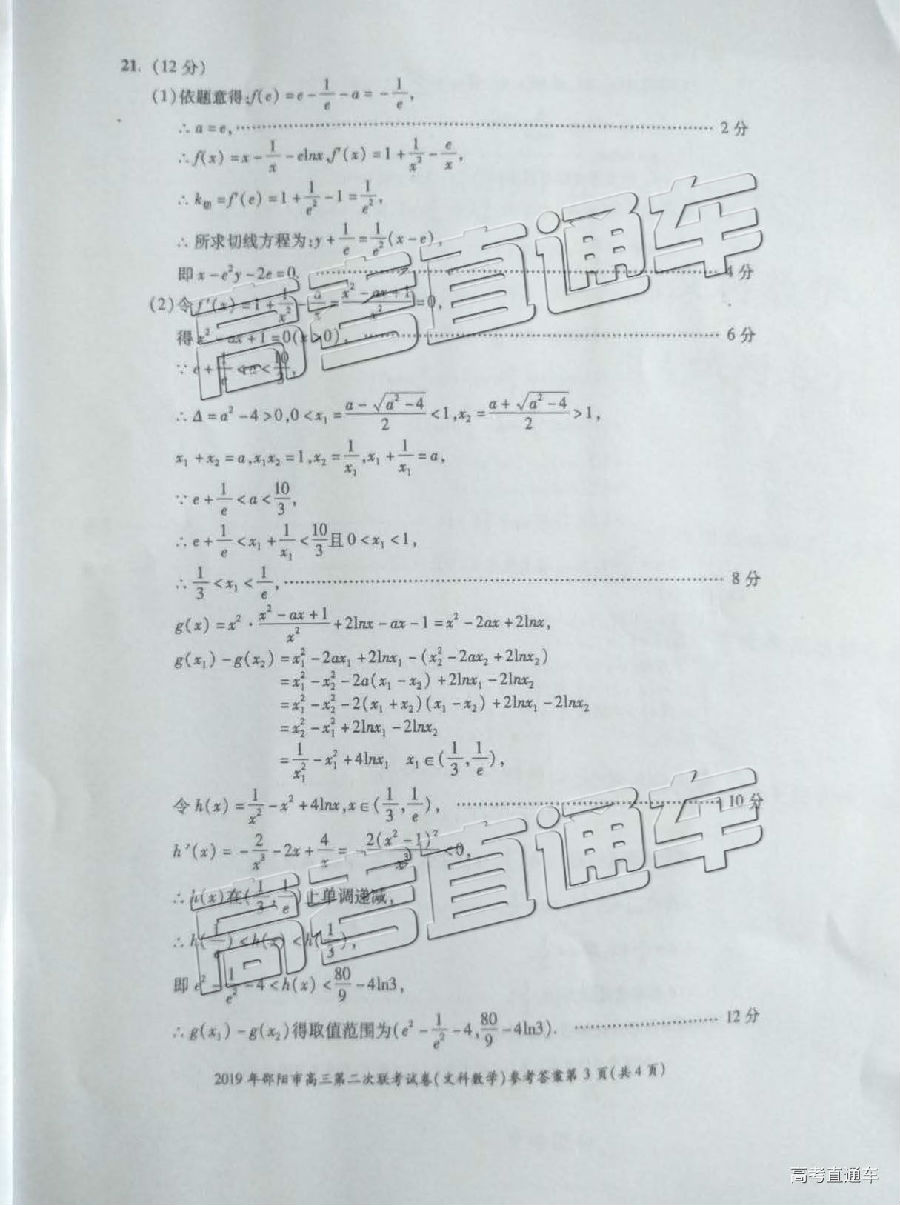 21. (12 分)
(1)依题意得:f(e) = e - 1/e - a = - 1/e,
∴ a = e, …… 2 分
∴ f(x) = x - 1/x - elnx, f′(x) = 1 + 1/x² - e/x,
∴ k切 = f′(e) = 1 + 1/e² - 1 = 1/e²,
∴ 所求切线方程为:y + 1/e = 1/e²(x - e),
即 x - e²y - 2e = 0. …… 4 分
(2)令 f′(x) = 1 + 1/x² - a/x = (x² - ax + 1)/x² = 0,
得 x² - ax + 1 = 0(x > 0), …… 6 分
∵ e + 1/e < a < 10/3,
∴ Δ = a² - 4 > 0, 0 < x₁ = (a - √(a² - 4))/2 < 1, x₂ = (a + √(a² - 4))/2 > 1,
x₁ + x₂ = a, x₁x₂ = 1, x₂ = 1/x₁, x₁ + 1/x₁ = a,
∵ e + 1/e < a < 10/3,
∴ e + 1/e < x₁ + 1/x₁ < 10/3 且 0 < x₁ < 1,
∴ 1/3 < x₁ < 1/e, …… 8 分
g(x) = x² · (x² - ax + 1)/x² + 2lnx - ax - 1 = x² - 2ax + 2lnx,
g(x₁) - g(x₂) = x₁² - 2ax₁ + 2lnx₁ - (x₂² - 2ax₂ + 2lnx₂)
= x₁² - x₂² - 2a(x₁ - x₂) + 2lnx₁ - 2lnx₂
= x₁² - x₂² - 2(x₁ + x₂)(x₁ - x₂) + 2lnx₁ - 2lnx₂
= x₂² - x₁² + 2lnx₁ - 2lnx₂
= 1/x₁² - x₁² + 4lnx₁ x₁ ∈ (1/3, 1/e),
令 h(x) = 1/x² - x² + 4lnx, x ∈ (1/3, 1/e), …… 10 分
h′(x) = - 2/x³ - 2x + 4/x = - 2(x² - 1)²/x³ < 0,
∴ h(x)在(1/3, 1/e)上单调递减,
∴ h(1/e) < h(x) < h(1/3),
即 e² - 1/e² - 4 < h(x) < 80/9 - 4ln3,
∴ g(x₁) - g(x₂)得取值范围为(e² - 1/e² - 4, 80/9 - 4ln3). …… 12 分
2019 年邵阳市高三第二次联考试卷(文科数学)参考答案第 3 页(共 4 页)
高考直通车
高考直通车
高考直通车